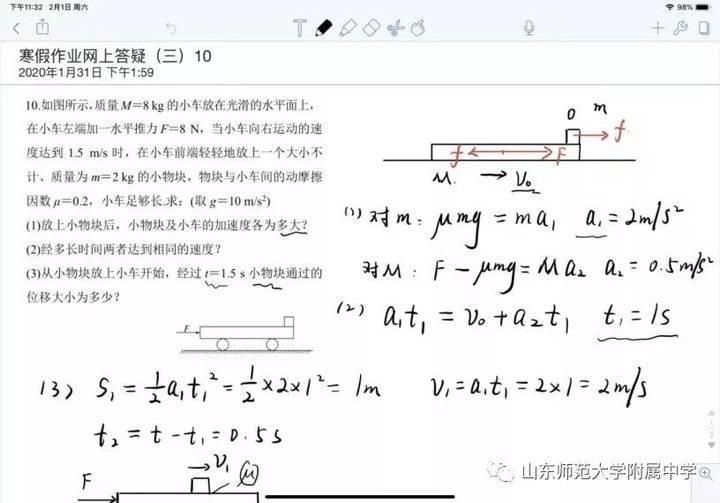 下午11:32 2月1日 周六
98%
寒假作业网上答疑（三）10
2020年1月31日 下午1:59
10.如图所示,质量 M=8 kg 的小车放在光滑的水平面上，
在小车左端加一水平推力 F=8 N，当小车向右运动的速
度达到 1.5 m/s 时，在小车前端轻轻地放上一个大小不
计、质量为 m=2 kg 的小物块，物块与小车间的动摩擦
因数 μ=0.2，小车足够长.求：(取 g=10 m/s²)
(1)放上小物块后，小物块及小车的加速度各为多大？
(2)经多长时间两者达到相同的速度？
(3)从小物块放上小车开始，经过 t=1.5 s 小物块通过的
位移大小为多少？
F
0 m
f
f F
M. → V₀
(1) 对m: μmg = ma₁ a₁=2m/s²
对M: F-μmg=Ma₂ a₂=0.5m/s²
(2) a₁t₁ = v₀+a₂t₁ t₁=1s
(3) S₁=½a₁t₁²=½×2×1²=1m V₁=a₁t₁=2×1=2m/s
t₂=t-t₁=0.5s
→V₁
F
山东师范大学附属中学